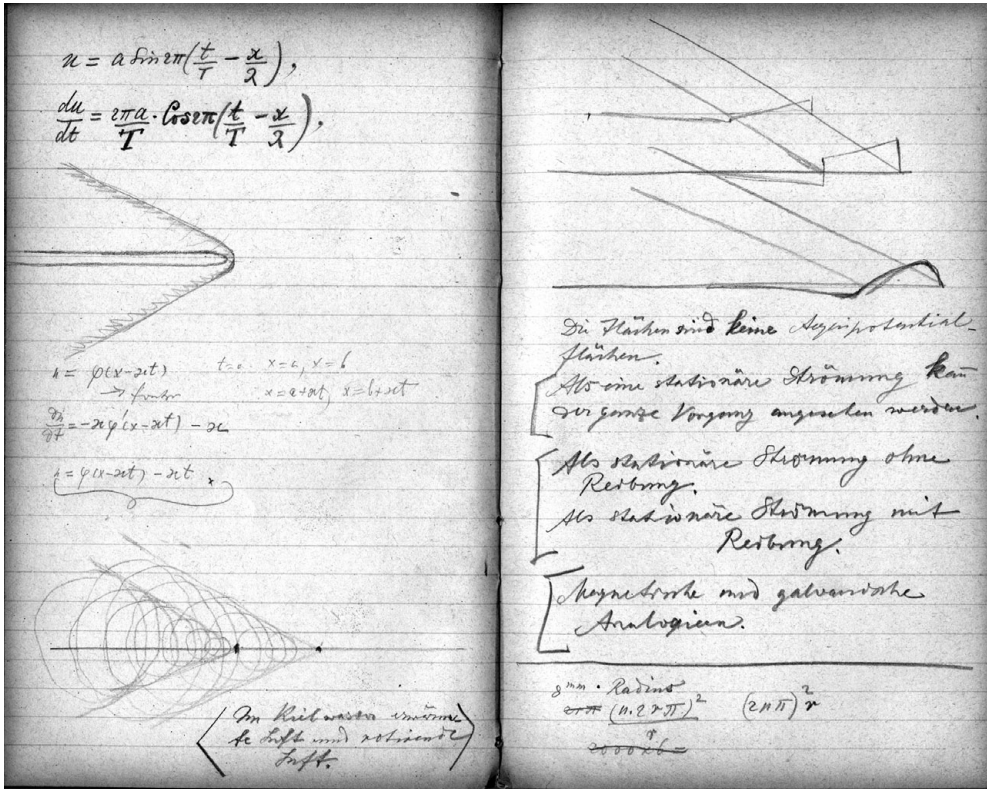 u = a sin 2π(t/T − x/λ),
du/dt = 2πa/T · Cos 2π(t/T − x/λ).
φ(x−ϰt)
t=0 x=a, x=b
x=a+ϰt, x=b+ϰt
= −ϰφ'(x−ϰt) − ϰ
= φ(x−ϰt) − ϰt
Im Kielwasser erwärm-
te Luft und rotirende
Luft.
Die Flächen sind keine Aequipotential-
flächen.
Als eine stationäre Strömung kann
der ganze Vorgang angesehen werden.
Als stationäre Strömung ohne
Reibung.
Als stationäre Strömung mit
Reibung.
Magnetische und galvanische
Analogieen.
8mm · Radius
(n.2rπ)² (2nπ)² r
r